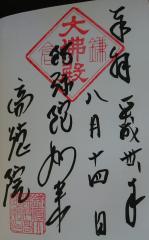 奉拝 平成卅年
八月十四日
大佛殿
鎌倉
阿弥陀如来
高徳院